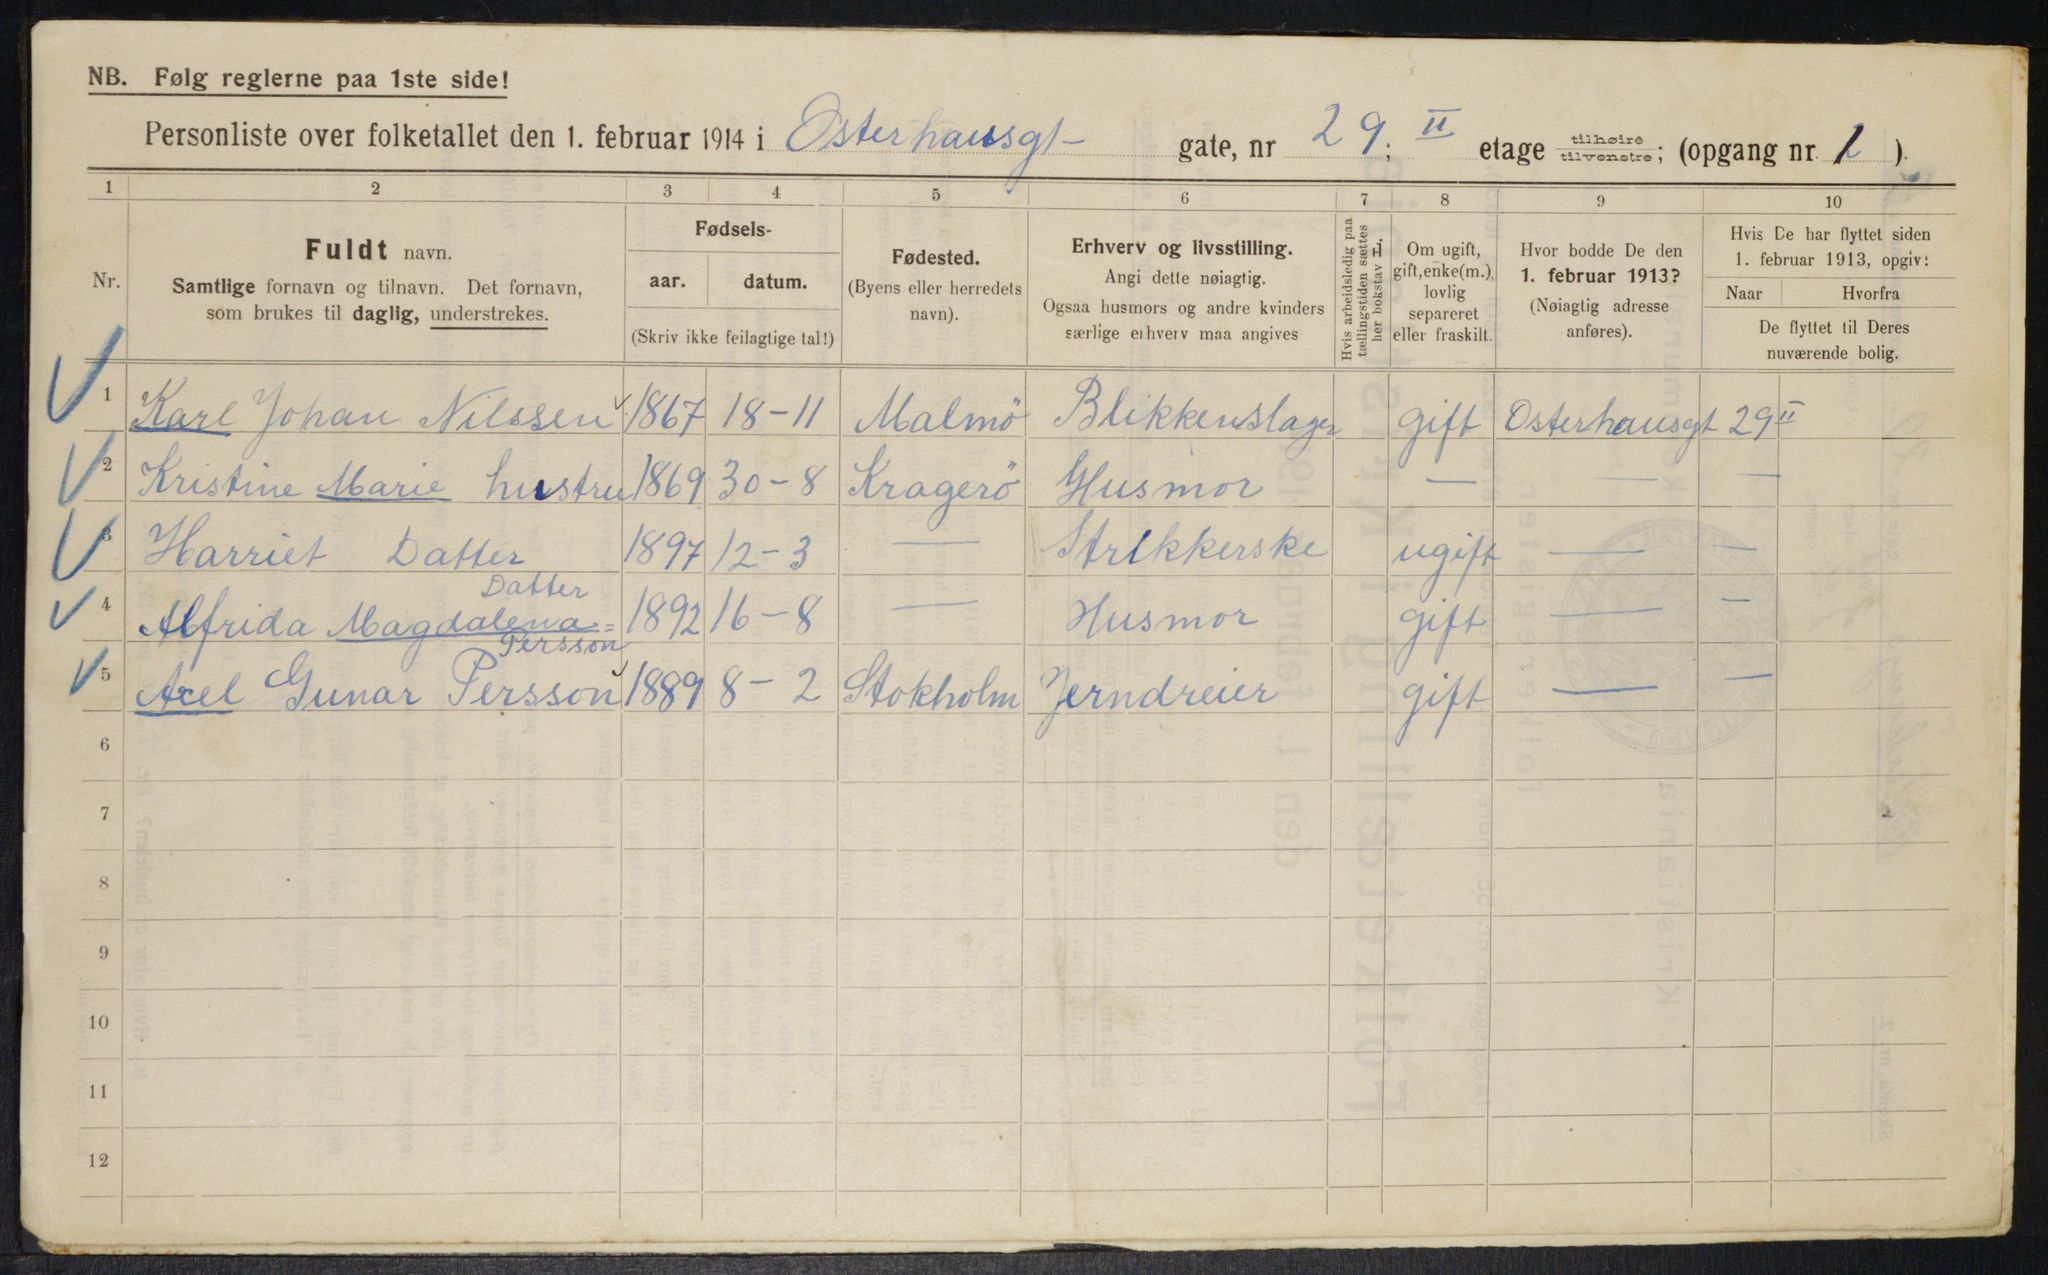 NB. Følg reglerne paa 1ste side!
Personliste over folketallet den 1. februar 1914 i Osterhausgt- gate, nr 29; II etage tilhøire/tilvenstre; (opgang nr. 1 ).
1 2 3 4 5 6 7 8 9 10
Nr.
Fuldt navn.
Samtlige fornavn og tilnavn. Det fornavn,
som brukes til daglig, understrekes.
Fødsels-
aar. datum.
(Skriv ikke feilagtige tal!)
Fødested.
(Byens eller herredets
navn).
Erhverv og livsstilling.
Angi dette nøiagtig.
Ogsaa husmors og andre kvinders
særlige erhverv maa angives
Hvis arbeidsledig paa
tællingstiden sættes
her bokstav H.
Om ugift,
gift, enke(m.),
lovlig
separeret
eller fraskilt.
Hvor bodde De den
1. februar 1913?
(Nøiagtig adresse
anføres).
Hvis De har flyttet siden
1. februar 1913, opgiv:
Naar Hvorfra
De flyttet til Deres
nuværende bolig.
1 Karl Johan Nilssen 1867 18-11 Malmö Blikkenslager gift Osterhausgt 29 II
2 Kristine Marie hustru 1869 30-8 Kragerö Husmor — — —
3 Harriet Datter 1897 12-3 — Strikkerske ugift — —
Datter
4 Alfrida Magdalena= 1892 16-8 — Husmor gift — —
Persson
5 Axel Gunar Persson 1889 8-2 Stokholm Jerndreier gift — —
6
7
8
9
10
11
12